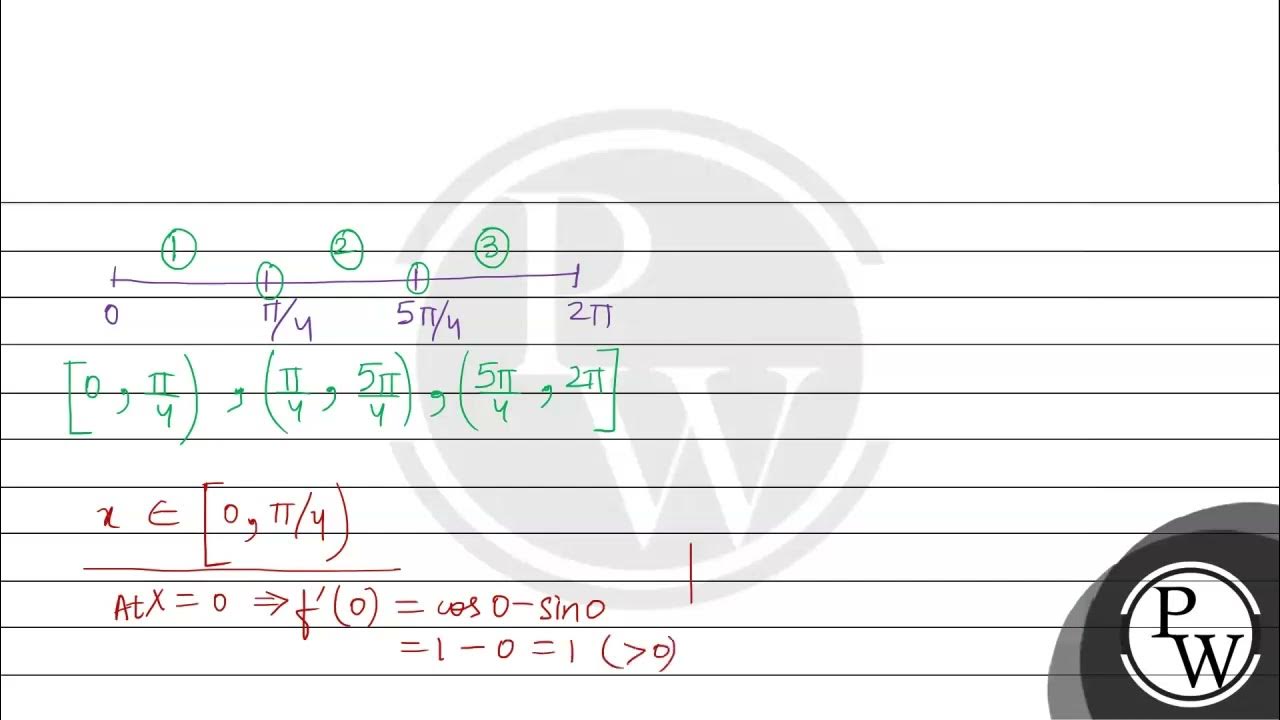 ① ② ③
0 π/4 5π/4 2π
[0, π/4), (π/4, 5π/4), (5π/4, 2π]
x ∈ [0, π/4)
At x = 0 ⇒ f'(0) = cos 0 - sin 0
= 1 - 0 = 1 (>0)
PW
PW